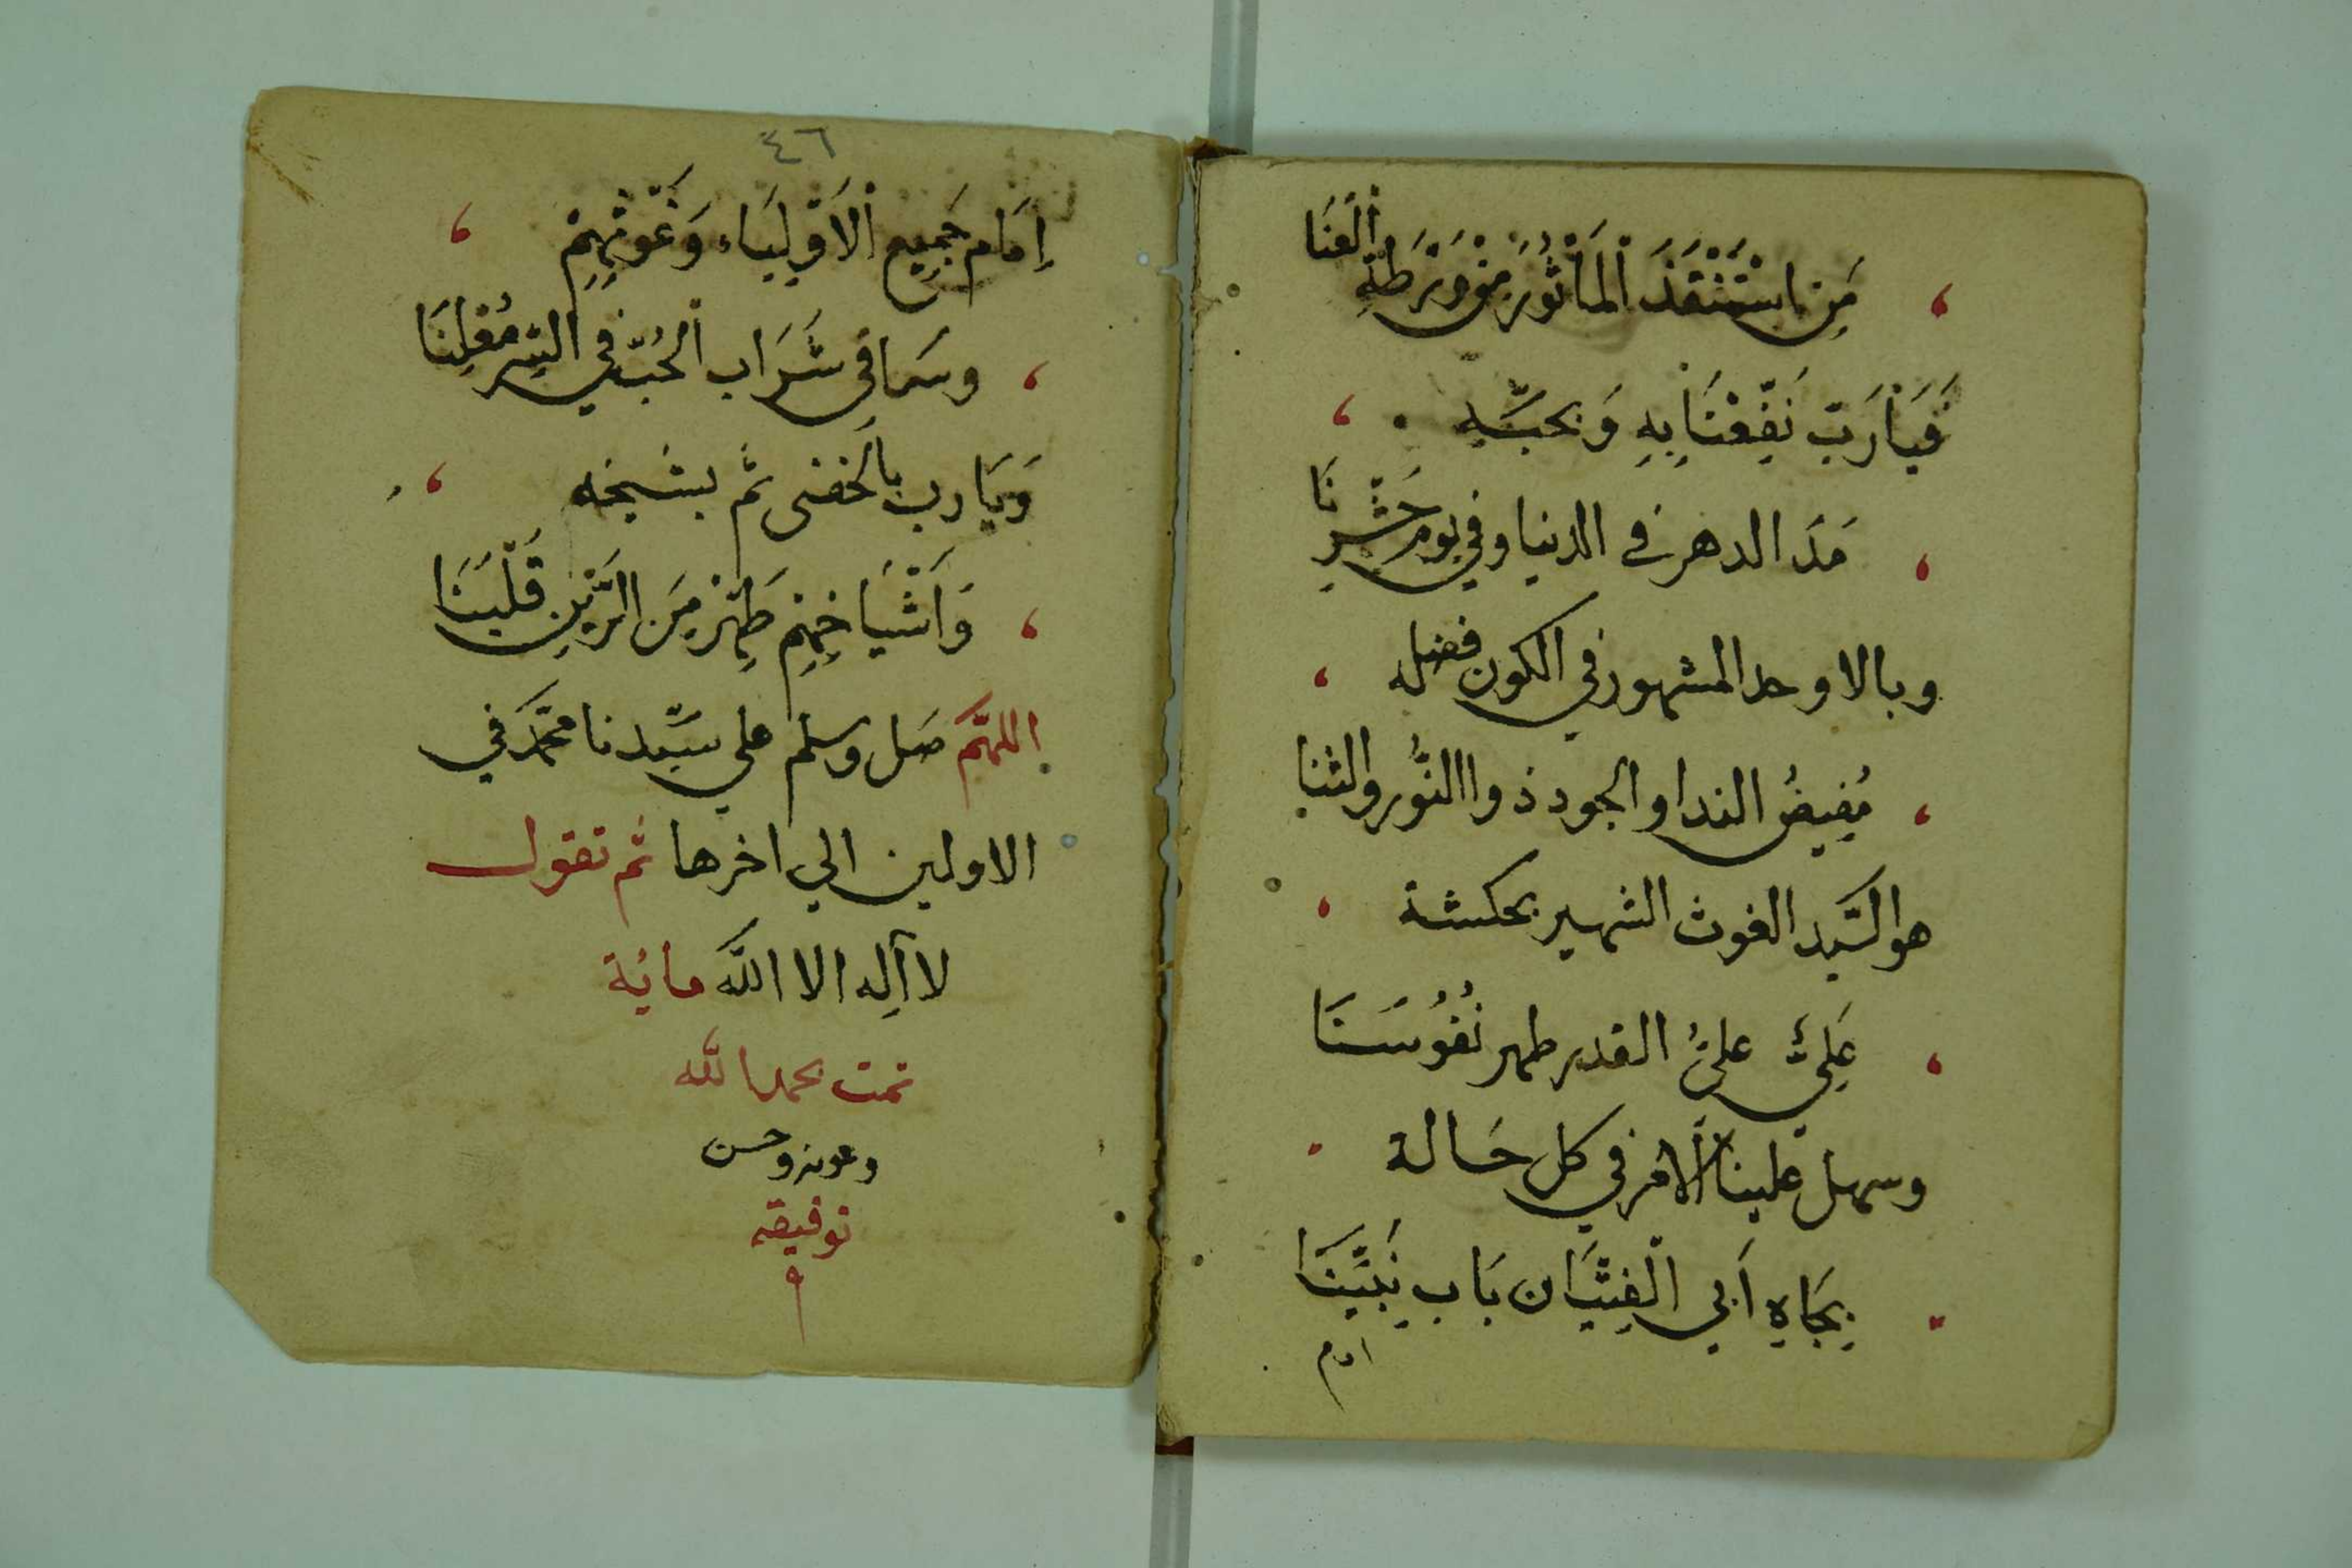 مَنِ اسْتَنْقَذَ الْمَأْثُورَ مِنْ وَرْطَةِ الْعَنَا
فَيَارَبِّ نَفِّعْنَا بِهِ وَبِحُبِّهِ
مَدَا الدهر في الدنيا وفي يوم حَشْرِنَا
وبالاوحد المشهور في الكون فضله
مُفِيضُ الندا والجود ذوا النُّور والثنا
هو السَّيد الغوث الشهير بحكشة
عَلِيٌّ عليُّ القدر طهر نُفُوسَنَا
وسهل علينا الأمر في كل حَالة
بِجَاهِ أَبِي الْفِتْيَان بَابِ نَبِيِّنَا
امام
٤٦
إِمَام جَمِيعِ الْأَوْلِيَاء وَغَوْثِهِمْ
وسَاقِي شَرَاب الْحُبّ في السِّر مُعْلِنَا
وَيَا رب بالحفنى ثم بشيخه
وَأَشْيَاخِهِم طَهِّرْ مِنَ الرَّيْنِ قَلْبَنَا
اللهمَّ صَل وسلم علي سيِّدنا محمَّد في
الاولين الي اخرها ثم تقول
لا اله الا الله مائة
تمت بحمد الله
وعونه وحسن
توفيقه
م